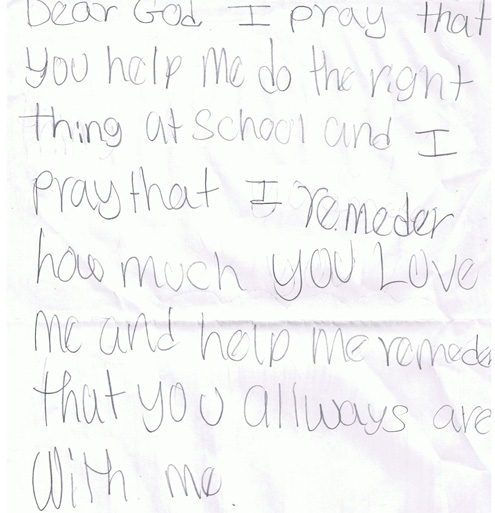 Dear God I pray that
you help me do the right
thing at school and I
pray that I remeder
how much you Love
me and help me remeder
that you allways are
With me.